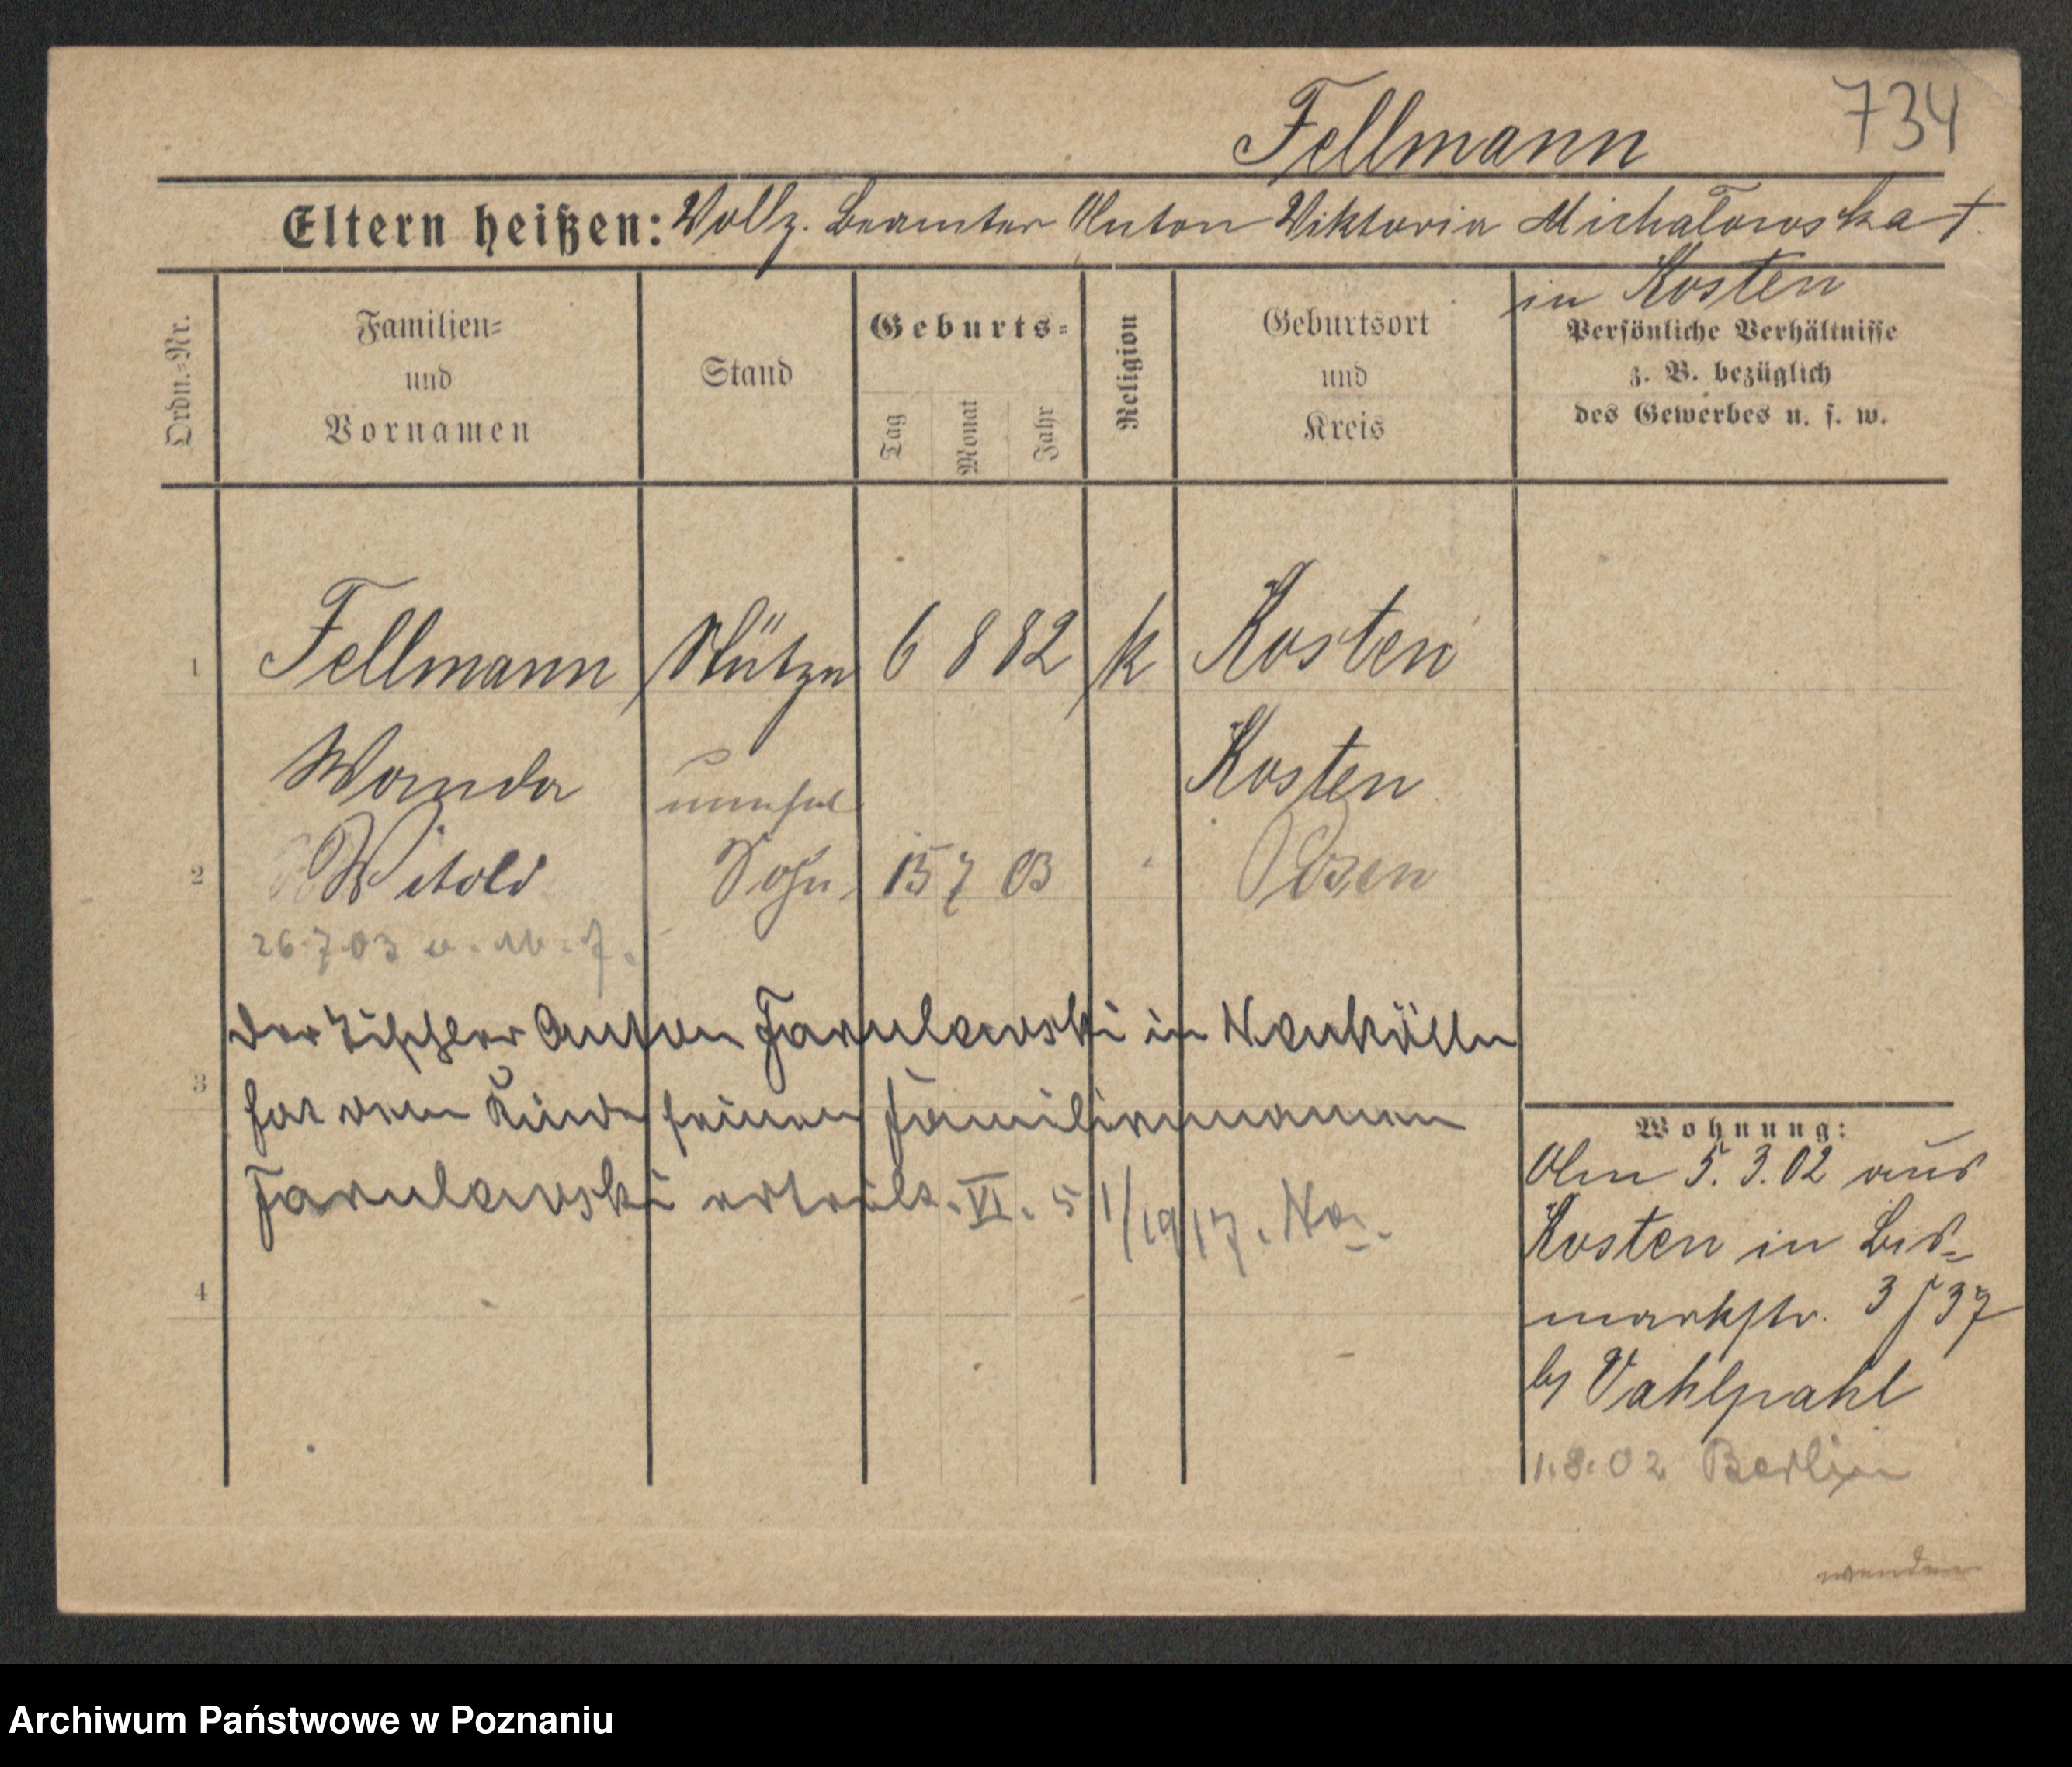 734
Fellmann
Eltern heißen: Vollz. Beamter Anton Viktoria Michałowska †
in Kosten
Ordn.=Nr.
Familien=
und
Vornamen
Stand
Geburts=
Tag
Monat
Jahr
Religion
Geburtsort
und
Kreis
Persönliche Verhältnisse
z. B. bezüglich
des Gewerbes u. s. w.
1 Fellmann Stütze 6 8 82 k Kosten
Wanda Kosten
unehel
2 Witold Sohn 15 7 03 Posen
26.7.03
der Tischler Anton Janulewski in Neukölln
3
hat dem Kinde seinen Familiennamen
Janulewski erteilt. VI. 5 1/1917.
4
Wohnung:
Am 5. 3. 02 aus
Kosten in Bis=
markstr. 3 / 37
by Vahlpahl
1.8.02 Berlin
wenden
Archiwum Państwowe w Poznaniu